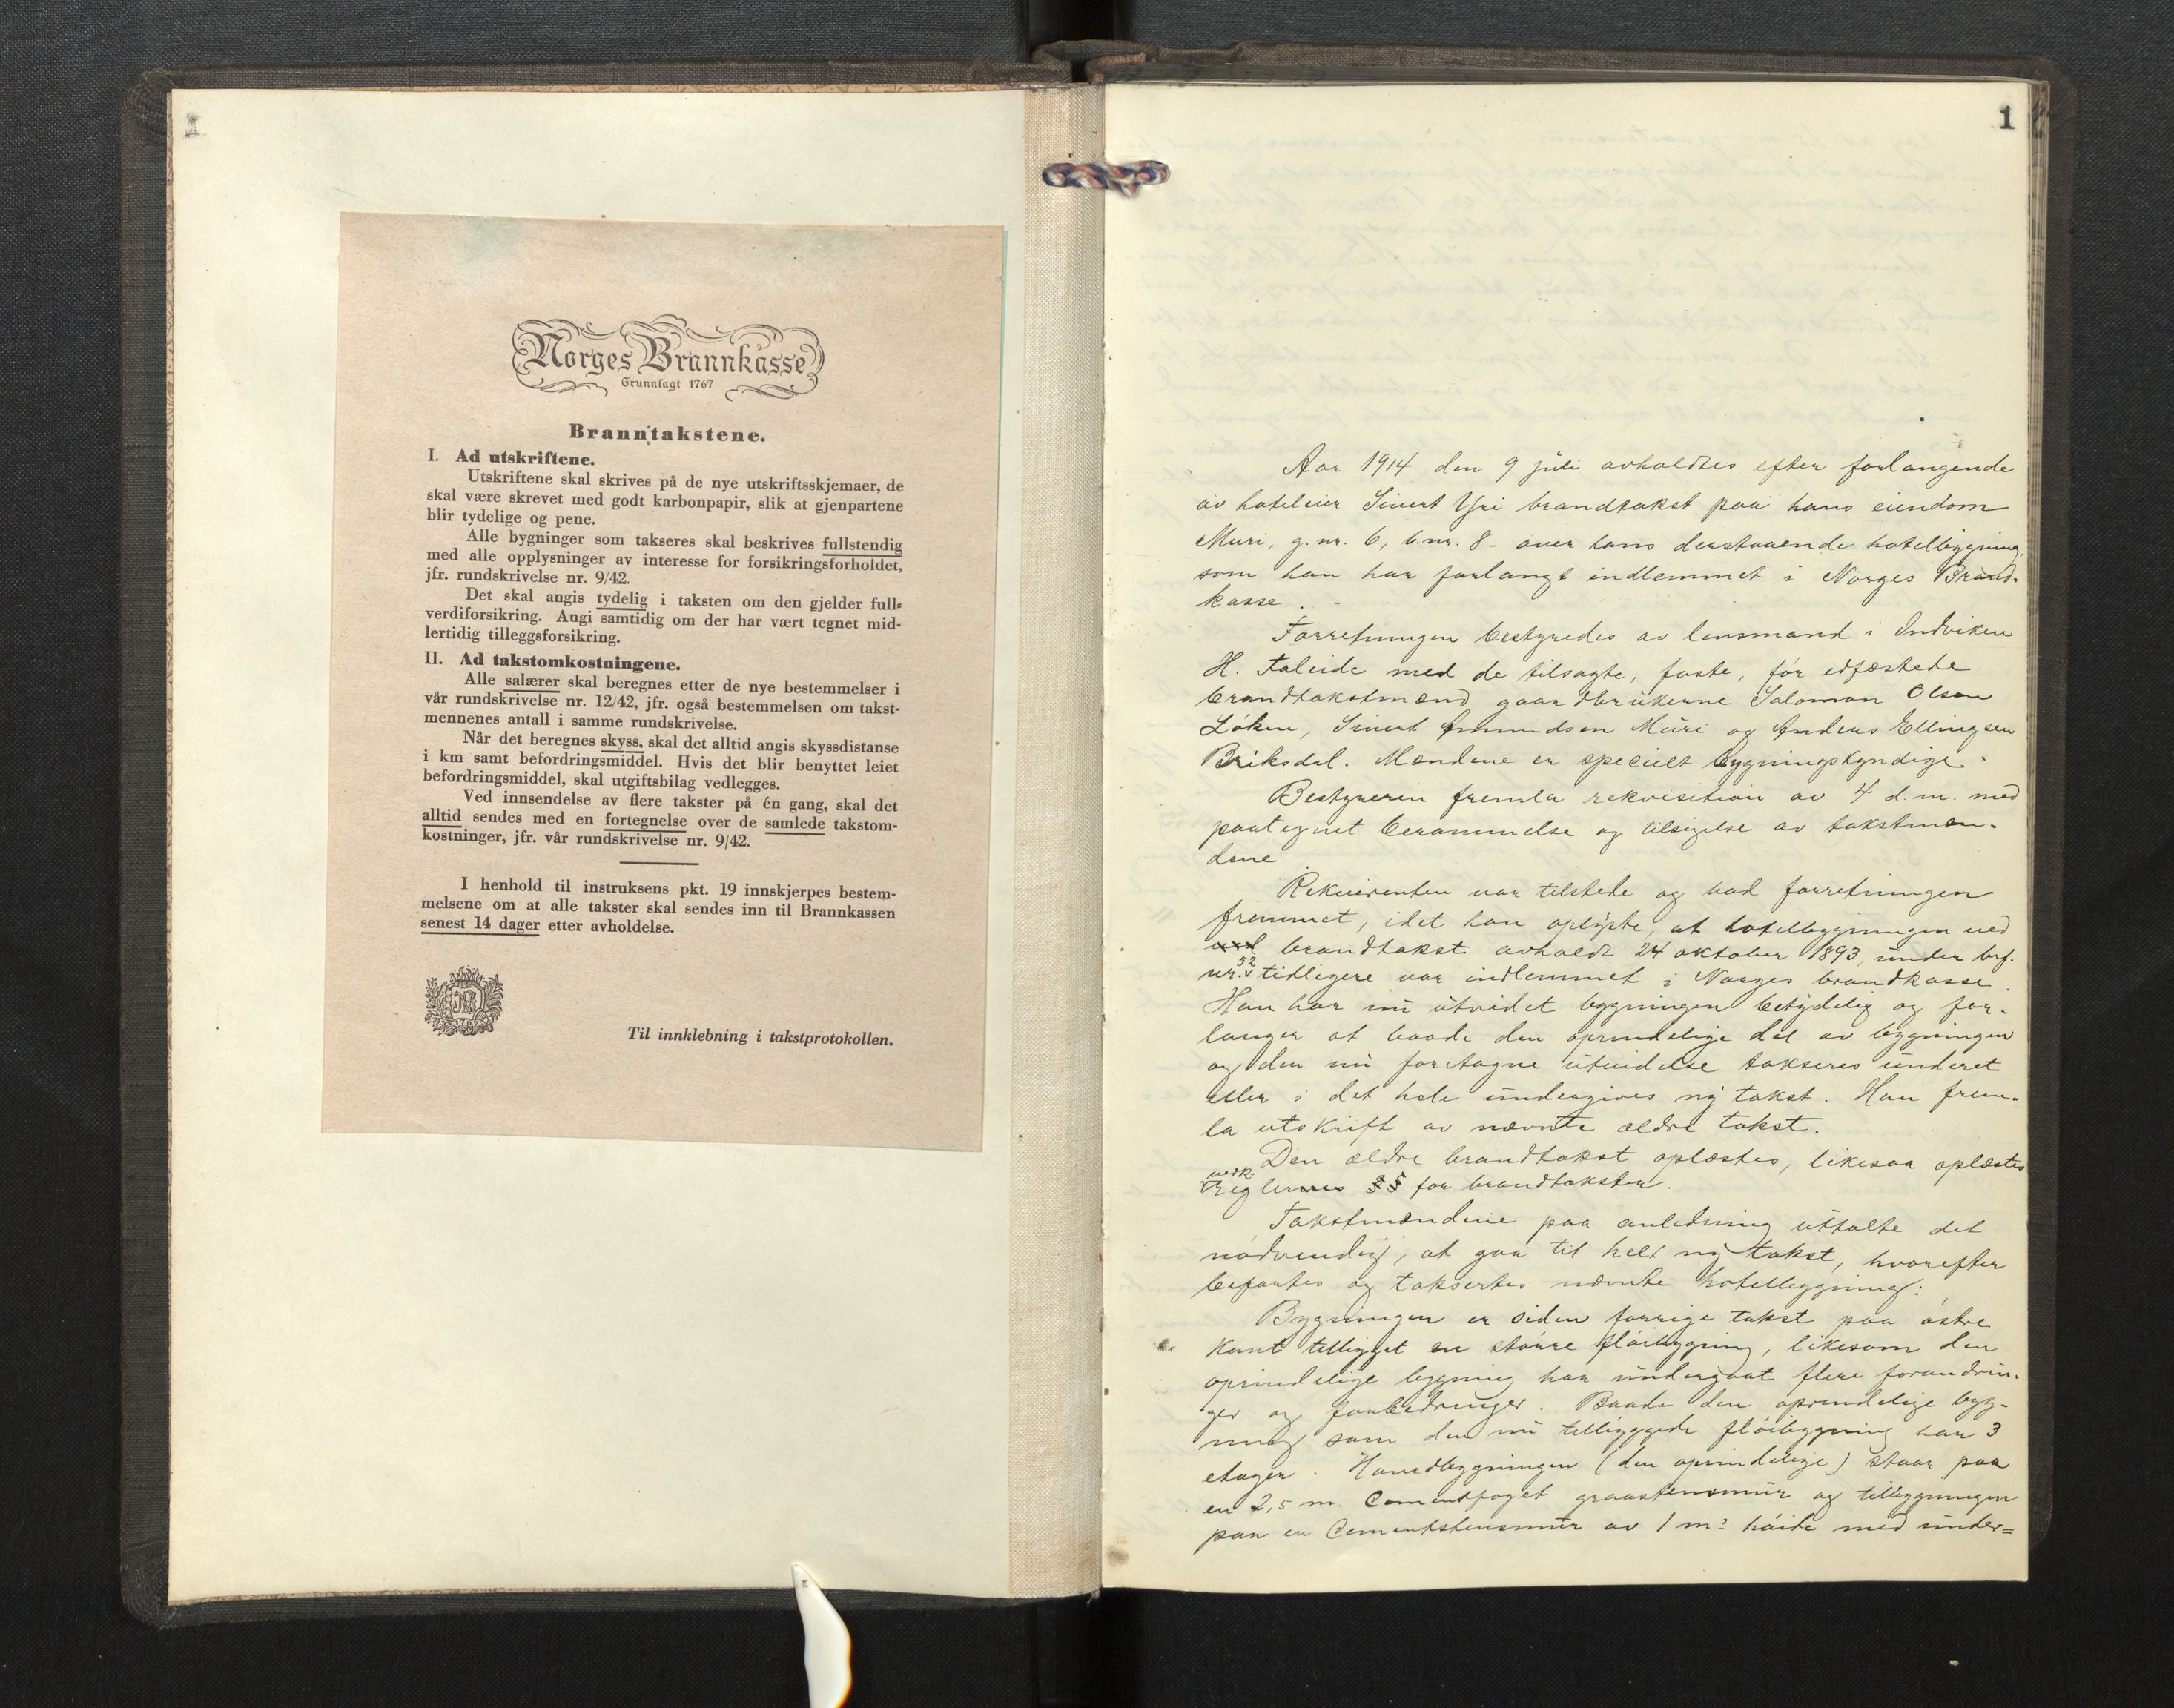 Norges Brannkasse
Grunnlagt 1767
Branntakstene.
I. Ad utskriftene.
Utskriftene skal skrives på de nye utskriftsskjemaer, de
skal være skrevet med godt karbonpapir, slik at gjenpartene
blir tydelige og pene.
Alle bygninger som takseres skal beskrives fullstendig
med alle opplysninger av interesse for forsikringsforholdet,
jfr. rundskrivelse nr. 9/42.
Det skal angis tydelig i taksten om den gjelder full-
verdiforsikring. Angi samtidig om der har vært tegnet mid-
lertidig tilleggsforsikring.
II. Ad takstomkostningene.
Alle salærer skal beregnes etter de nye bestemmelser i
vår rundskrivelse nr. 12/42, jfr. også bestemmelsen om takst-
mennenes antall i samme rundskrivelse.
Når det beregnes skyss, skal det alltid angis skyssdistanse
i km samt befordringsmiddel. Hvis det blir benyttet leiet
befordringsmiddel, skal utgiftsbilag vedlegges.
Ved innsendelse av flere takster på én gang, skal det
alltid sendes med en fortegnelse over de samlede takstom-
kostninger, jfr. vår rundskrivelse nr. 9/42.
I henhold til instruksens pkt. 19 innskjerpes bestem-
melsene om at alle takster skal sendes inn til Brannkassen
senest 14 dager etter avholdelse.
Til innklebning i takstprotokollen.
1
Aar 1914 den 9 juli avholdtes efter forlangende
av hoteleier Sivert Yri brandtakst paa hans eiendom
Muri, g.nr. 6, b.nr. 8 - over hans derstaaende hotelbygning,
som han har forlangt indlemmet i Norges Brand-
kasse. -
Forretningen bestyredes av lensmand i Indviken
H. Faleide med de tilsagte, faste, før edfæstede
brandtakstmænd gaardbrukerne Salomon Olsen
Løken, Sivert Amundsen Muri og Anders Ellingsen
Briksdal. Mændene er specielt bygningskyndige.
Bestyreren fremla rekvisition av 4 d.m. med
paategnet berammelse og tilsigelse av takstmæn-
dene
Rekvirenten var tilstede og bad forretningen
fremmet, idet han oplyste, at hotelbygningen ved
brandtakst avholdt 24 oktober 1893, under brf.
nr. 52 tidligere var indlemmet i Norges brandkasse.
Han har nu utvidet bygningen betydelig og for-
langer at baade den oprindelige del av bygningen
og den nu foretagne utvidelse takseres underet
eller i det hele undergives ny takst. Han frem-
la utskrift av nævnte ældre takst.
Den ældre brandtakst oplæstes, likesaa oplæstes
vedk. Reglernes §§ for brandtaksten.
Takstmændene paa anledning uttalte det
nødvendig, at gaa til helt ny takst, hvorefter
befartes og taksertes nævnte hotelbygning:
Bygningen er siden forrige takst paa østre
kant tilbygget en større fløibygning, likesom den
oprindelige bygning har undergaat flere forandrin-
ger og forbedringer. Baade den oprindelige byg-
ning som den nu tilbyggede fløibygning har 3
etager. Hovedbygningen (den oprindelige) staar paa
en 2,5 m. Cementfoget graastensmur og tilbygningen
paa en Cementstensmur av 1 m² høide med under=